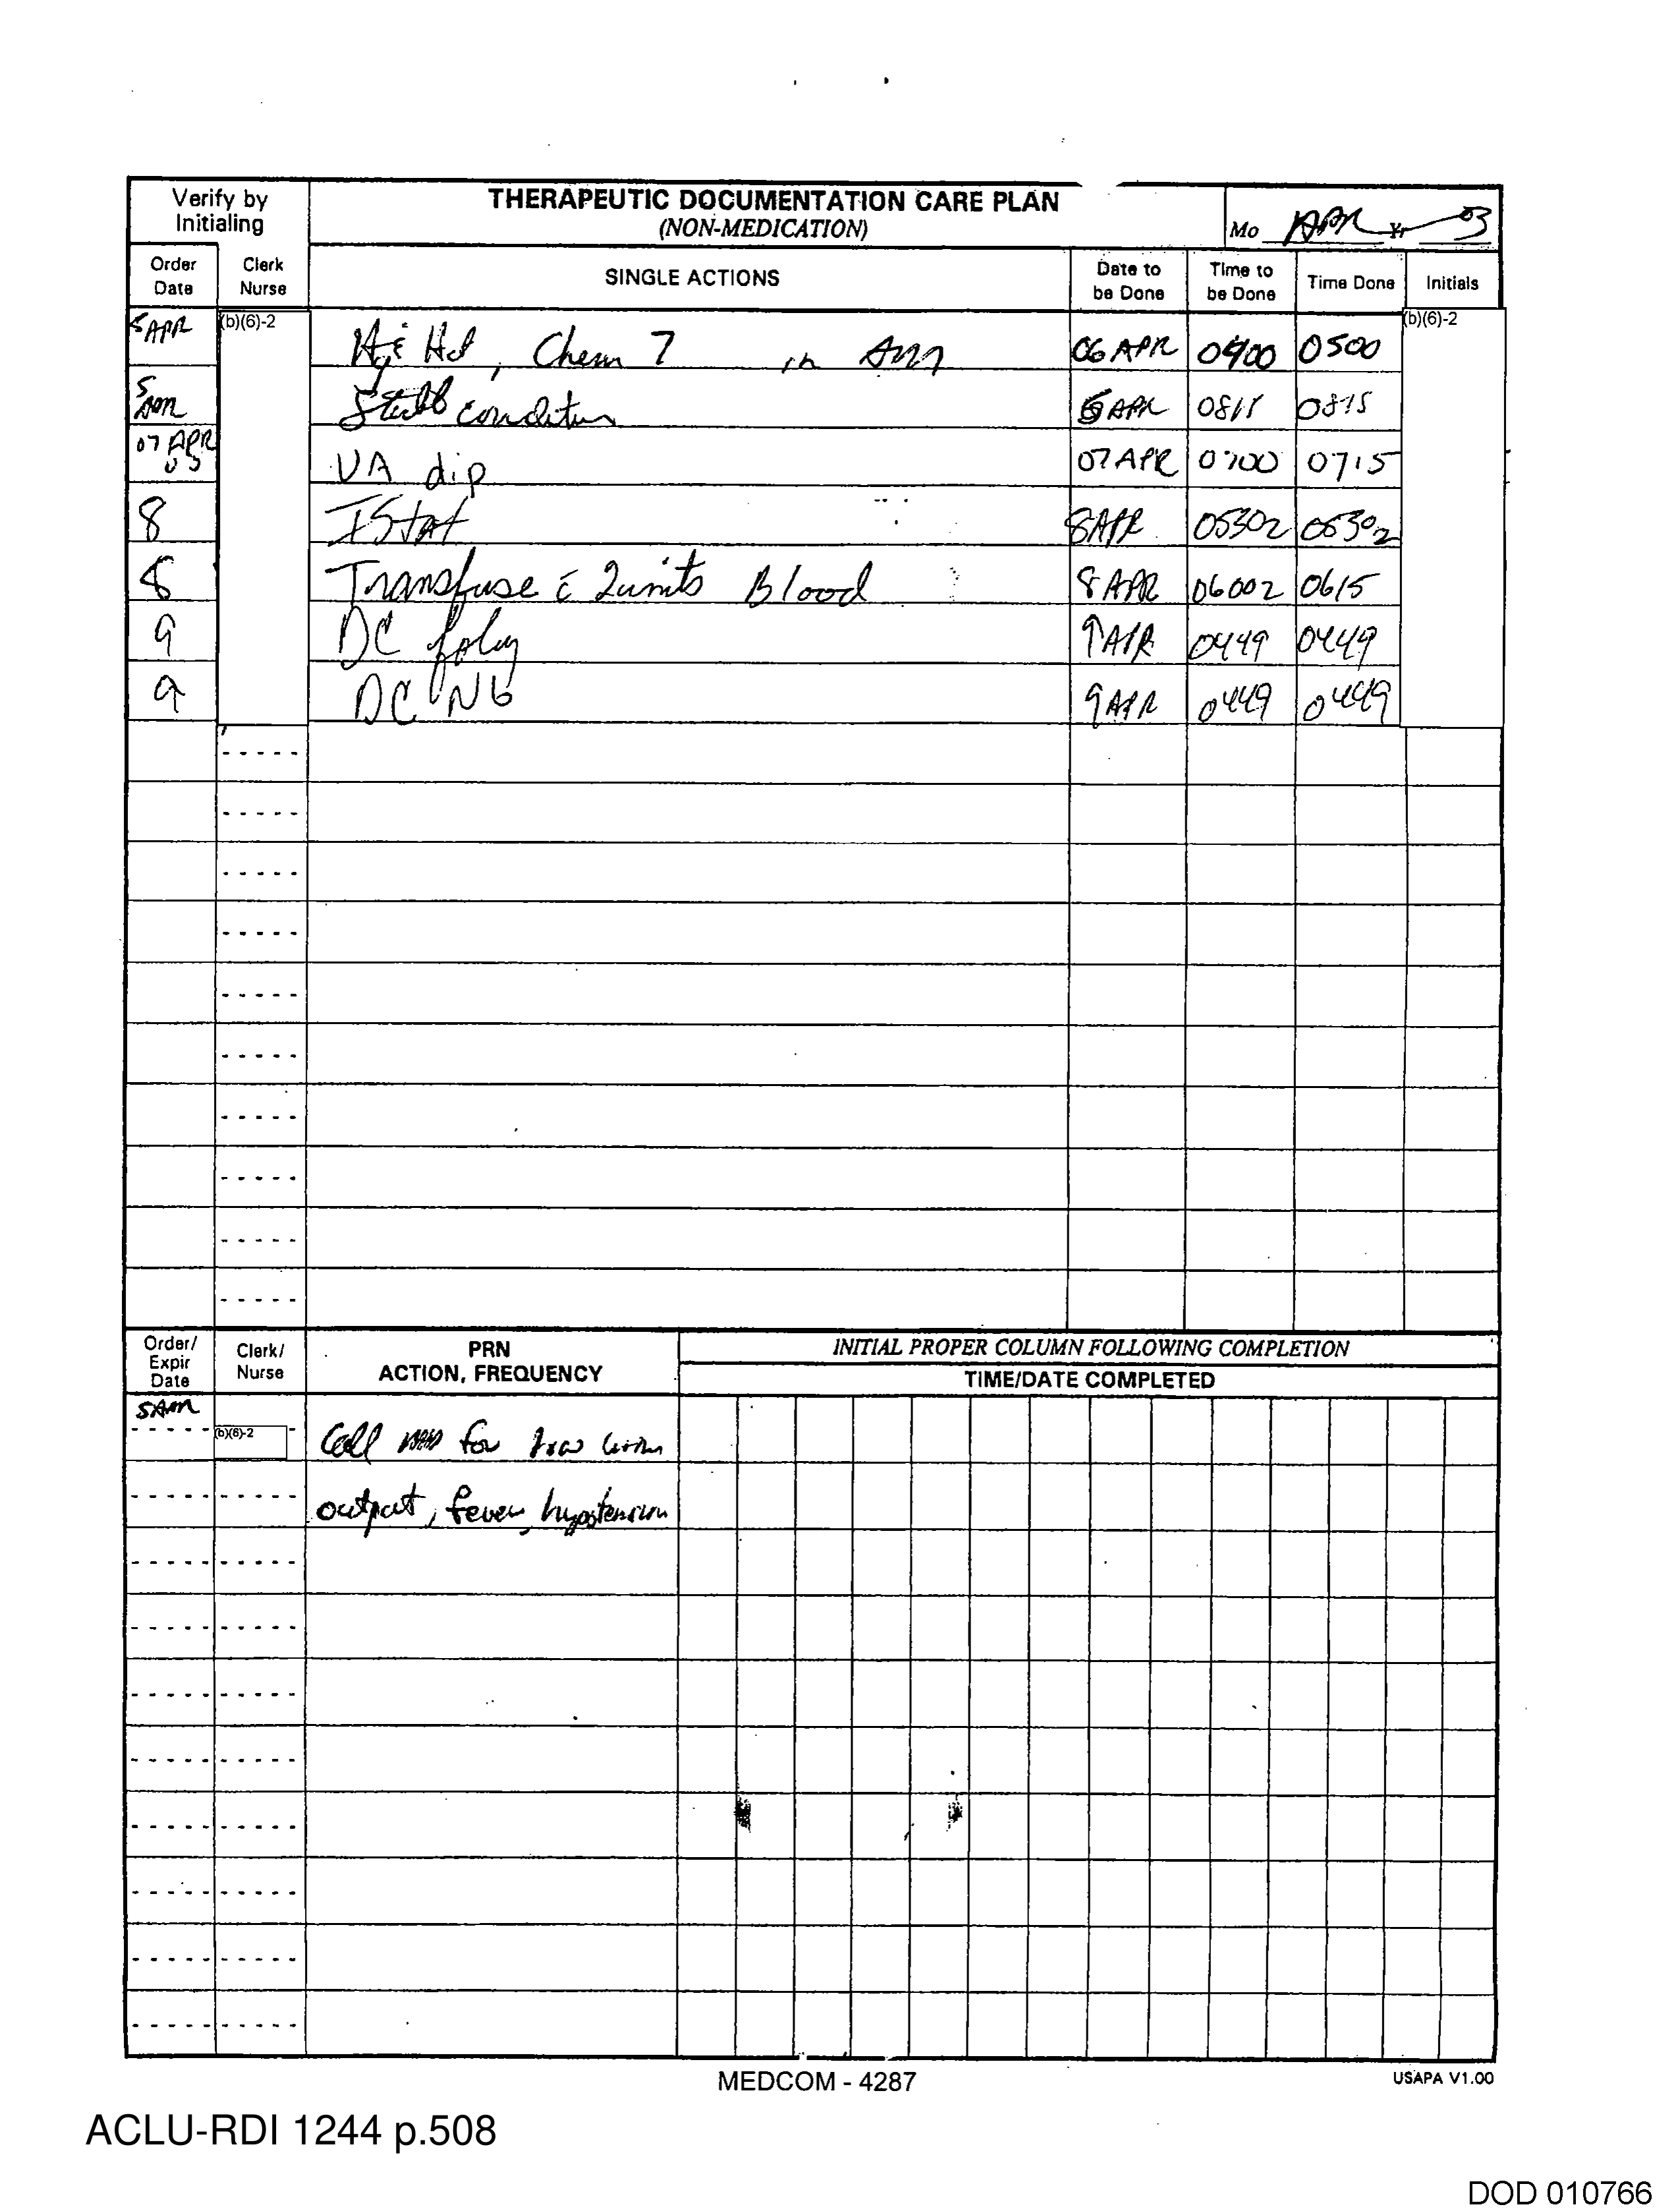 Verify by Initialing
THERAPEUTIC DOCUMENTATION CARE PLAN
(NON-MEDICATION)
Mo APR Yr 03
Order Date
Clerk Nurse
SINGLE ACTIONS
Date to be Done
Time to be Done
Time Done
Initials
5 APR (b)(6)-2 Hct, Chem 7 in AM 06 APR 0400 0500 (b)(6)-2
5 condition APR 0815 0815
07 APR 03 UA dip 07 APR 0700 0715
8 IStat 8 APR 0530Z 0530Z
8 Transfuse c̄ 2units Blood 8 APR 0600Z 0615
9 DC foley 9 APR 0449 0449
9 DC NG 9 APR 0449 0449
Order/ Expir Date
Clerk/ Nurse
PRN
ACTION, FREQUENCY
INITIAL PROPER COLUMN FOLLOWING COMPLETION
TIME/DATE COMPLETED
(b)(6)-2 Call for low urine
output, fever, hypotension
MEDCOM - 4287
USAPA V1.00
ACLU-RDI 1244 p.508
DOD 010766